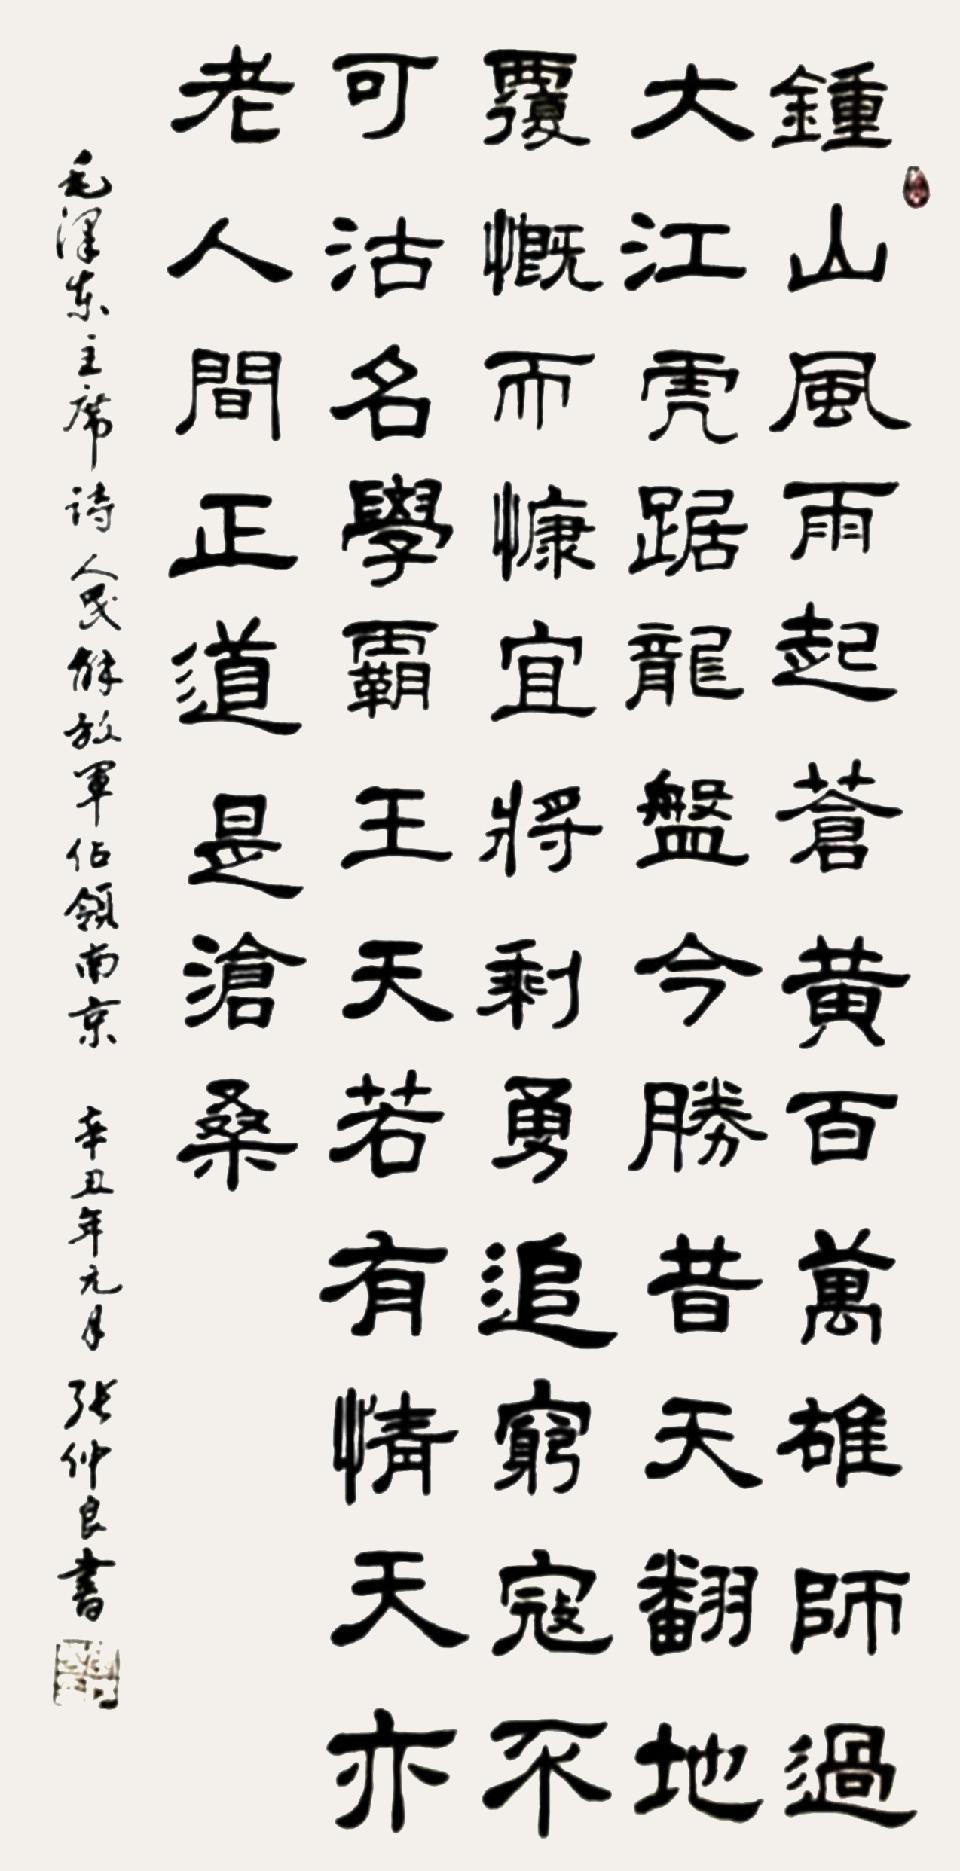 鍾山風雨起蒼黄百萬雄師過
大江虎踞龍盤今勝昔天翻地
覆慨而慷宜將剩勇追窮寇不
可沽名學霸王天若有情天亦
老人間正道是滄桑
毛澤东主席诗人民解放軍佔領南京 辛丑年元月 张仲良書